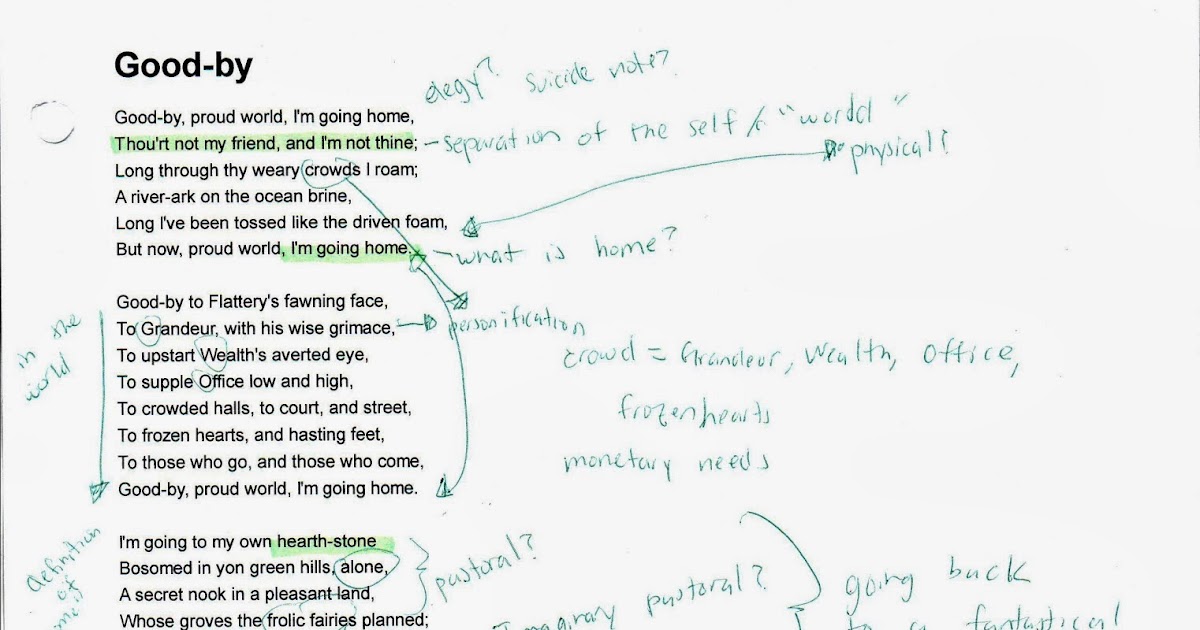 Good-by
elegy? suicide note?
Good-by, proud world, I'm going home,
Thou'rt not my friend, and I'm not thine; – separation of the self / "world"
physical?
Long through thy weary crowds I roam;
A river-ark on the ocean brine,
Long I've been tossed like the driven foam,
But now, proud world, I'm going home. – what is home?
Good-by to Flattery's fawning face,
To Grandeur, with his wise grimace, personification
in the
world
To upstart Wealth's averted eye,
crowd = Grandeur, Wealth, Office,
To supple Office low and high,
To crowded halls, to court, and street,
frozen hearts
To frozen hearts, and hasting feet,
To those who go, and those who come,
monetary needs
Good-by, proud world, I'm going home.
definition
of
I'm going to my own hearth-stone
Bosomed in yon green hills, alone,
pastoral?
A secret nook in a pleasant land,
Whose groves the frolic fairies planned;
Imaginary pastoral?
going back
to a fantastical